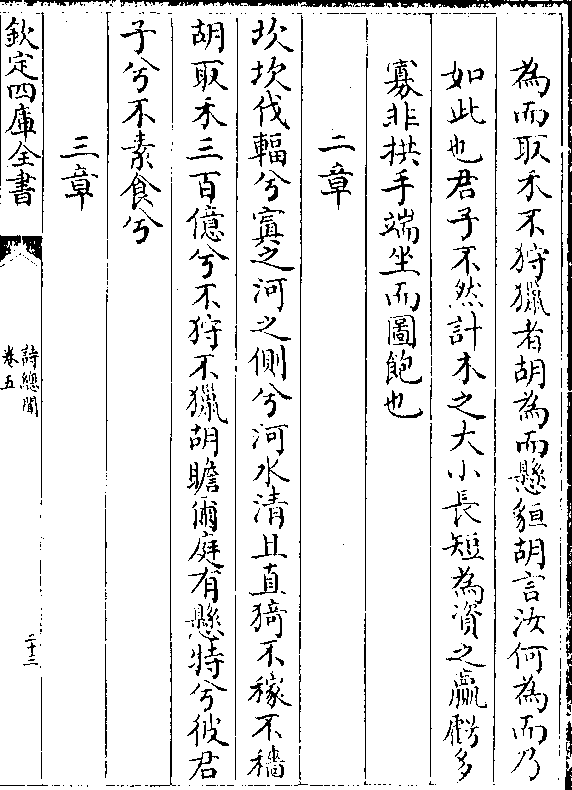 為而取禾不狩獵者胡為而懸貆胡言汝何為而乃
如此也君子不然計木之大小長短為資之贏虧多
寡非拱手端坐而圖飽也
二章
坎坎伐輻兮寘之河之側兮河水清且直猗不稼不穡
胡取禾三百億兮不狩不獵胡瞻爾庭有懸特兮彼君
子兮不素食兮
三章
欽定四庫全書
詩總聞
卷五
二十三